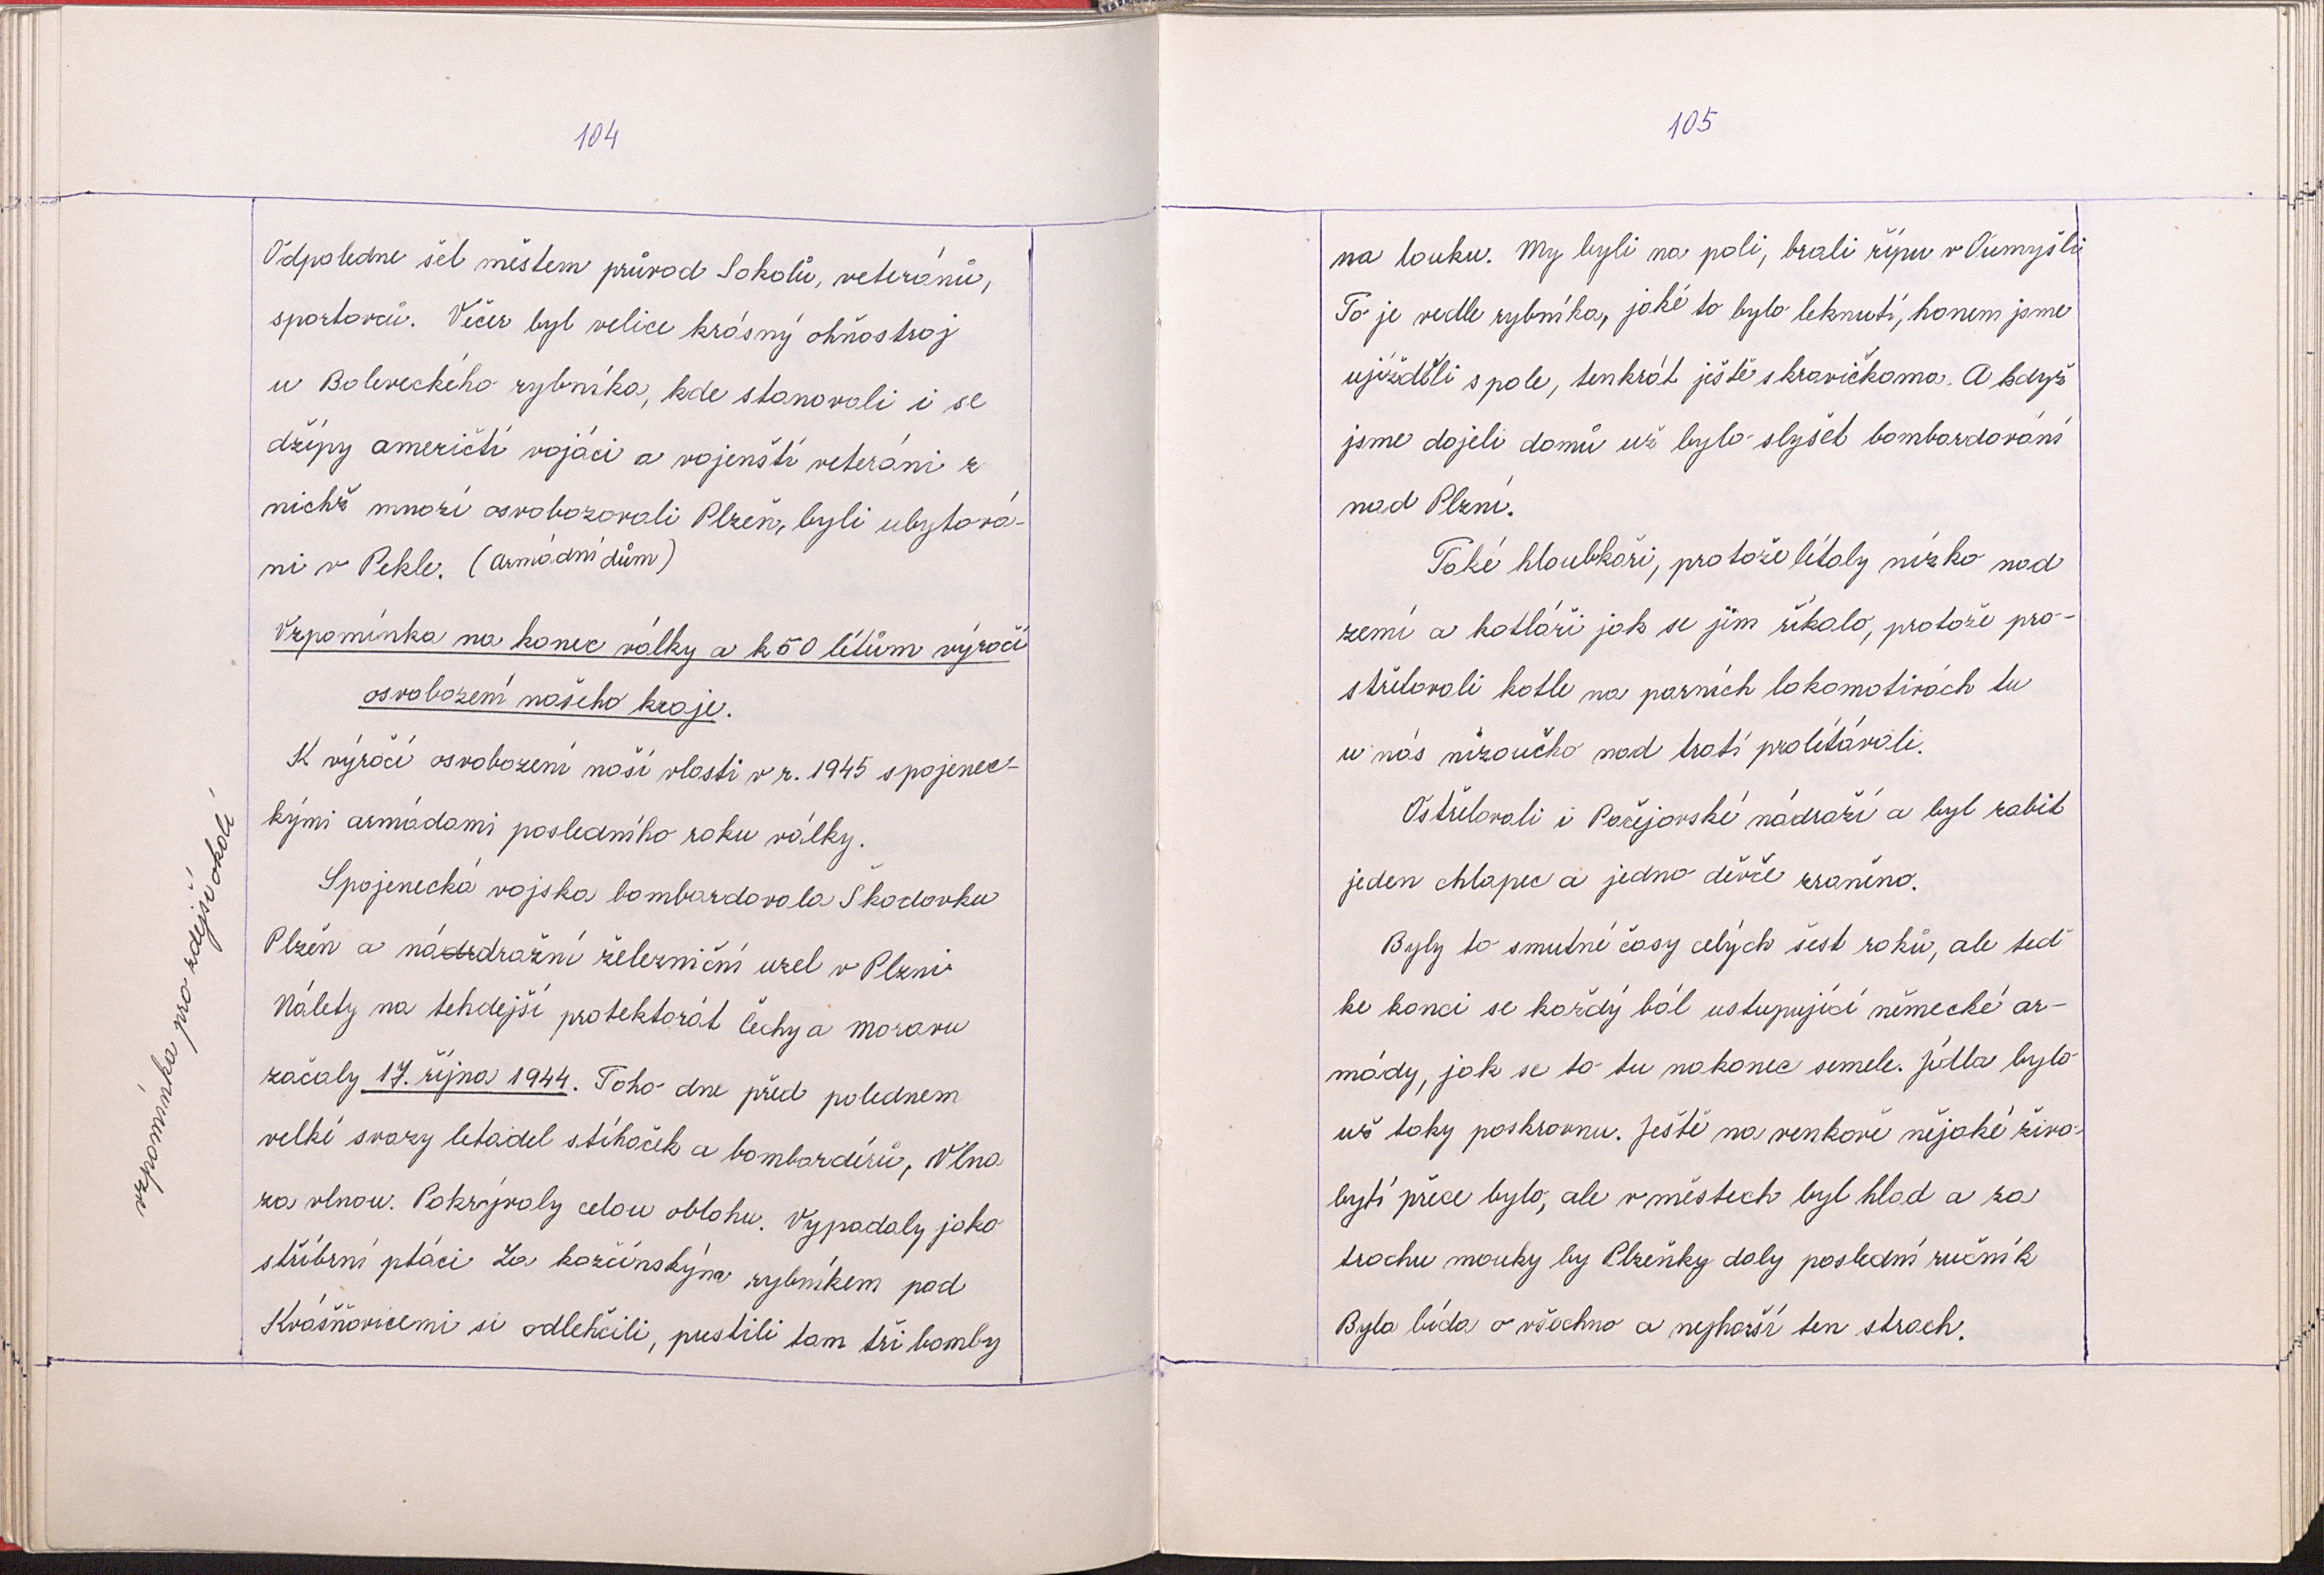 104
Odpoledne šel městem průvod Sokolů, veteránů,
sportovců. Večer byl velice krásný ohňostroj
u Boleveckého rybníka, kde stanovali i se
džípy američtí vojáci a vojenští veteráni z
nichž mnozí osvobozovali Plzeň, byli ubytová-
ni v Pekle. (armádní dům)
Vzpomínka na konec války a k 50 létům výročí
osvobození našeho kraje.
K výročí osvobození naší vlasti v r. 1945 spojenec-
kými armádami posledního roku války.
Spojenecká vojska bombardovala Škodovku
Plzěn a nádrdražní železniční uzel v Plzni
Nálety na tehdejší protektorát Čechy a Moravu
začaly 17. října 1944. Toho dne před polednem
velké svazy letadel stíhaček a bombardérů, Vlna
za vlnou. Pokrývaly celou oblohu. Vypadaly jako
stříbrní ptáci Za kozčínským rybníkem pod
Kvášňovicemi si odlehčili, pustili tam tři bomby
vzpomínka pro zdejší okolí
105
na louku. My byli na poli, brali řípu v
To je vedle rybníka, jaké to bylo leknutí, honem jsme
ujížděli s pole, tenkrát ještě s kravičkama. A když
jsme dojeli domů už bylo slyšet bombardování
nad Plzní.
Také hloubkaři, protože létaly nízko nad
zemí a kotláři jak se jim říkalo, protože pro-
střelovali kotle na parních lokomotivách tu
u nás nizoučko nad tratí prolétávali.
Ostřelovali i Pačejovské nádraží a byl zabit
jeden chlapec a jedno děvče zraněno.
Byly to smutné časy celých šest roků, ale teď
ke konci se každý bál ustupující německé ar-
mády, jak se to tu nakonec semele. Jídla bylo
už taky poskrovnu. Ještě na venkově nějaké živo-
bytí přece bylo, ale v městech byl hlad a za
trochu mouky by Plzeňky daly poslední ručník
Byla bída o všechno a nejhorší ten strach.